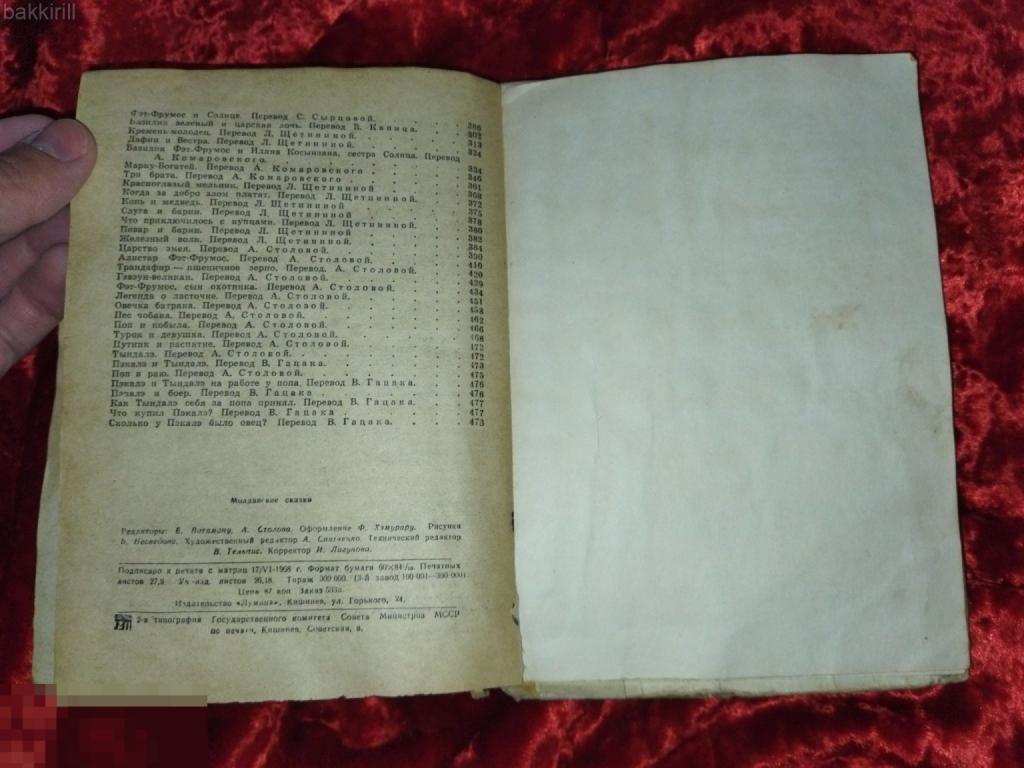 bakkirill
Фэт-Фрумос и Солнце. Перевод С. Сырцовой. 386
Базилик зеленый и царская дочь. Перевод В. Капица. 302
Кремень-молодец. Перевод Л. Щетининой. 313
Дафин и Вестра. Перевод Л. Щетининой. 324
Василий Фэт-Фрумос и Иляна Косынзяна, сестра Солнца. Перевод
А. Комаровского. 334
Марку-Богатей. Перевод А. Комаровского. 346
Три брата. Перевод А. Комаровского. 361
Красноглазый мельник. Перевод Л. Щетининой 368
Когда за добро злом платят. Перевод Л. Щетининой. 372
Конь и медведь. Перевод Л. Щетининой 375
Слуга и барин. Перевод Л. Щетининой 378
Что приключилось с купцами. Перевод Л. Щетининой. 380
Повар и барин. Перевод Л. Щетининой 382
Железный волк. Перевод Л. Щетининой. 384
Царство змея. Перевод А. Столовой. 390
Алистар Фэт-Фрумос. Перевод А. Столовой. 410
Трандафир — пшеничное зерно. Перевод А. Столовой. 420
Гэвэун-великан. Перевод А. Столовой. 429
Фэт-Фрумос, сын охотника. Перевод А. Столовой. 434
Легенда о ласточке. Перевод А. Столовой. 451
Овечка батрака. Перевод А. Столовой. 458
Пес чобана. Перевод А. Столовой. 462
Поп и кобыла. Перевод А. Столовой. 466
Турок и девушка. Перевод А. Столовой. 468
Путник и распятие. Перевод А. Столовой. 472
Тындалэ. Перевод А. Столовой. 472
Пэкалэ и Тындалэ. Перевод В. Гацака. 473
Поп в раю. Перевод А. Столовой. 475
Пэкалэ и Тындалэ на работе у попа. Перевод В. Гацака. 476
Пэкалэ и боер. Перевод В. Гацака 476
Как Тындалэ себя за попа принял. Перевод В. Гацака. 477
Что купил Пэкалэ? Перевод В. Гацака 477
Сколько у Пэкалэ было овец? Перевод В. Гацака. 473
Молдавские сказки
Редакторы: А. Столова. Оформление Ф. Хэмурару. Рисунки
Художественный редактор А. Технический редактор
В. Корректор И. Лагунова.
Подписано к печати с матриц 17/VI-1968 г. Формат бумаги 60×84¹/₁₆. Печатных
листов 27,9 Уч-изд. листов 26,18 Тираж 300 000. (3-й завод 100 001—300 000).
Цена 87 коп Заказ
Издательство «Лумина», Кишинев, ул. Горького, 24.
2-я типография Государственного комитета Совета Министров МССР
по печати, Кишинев, Советская, 8.